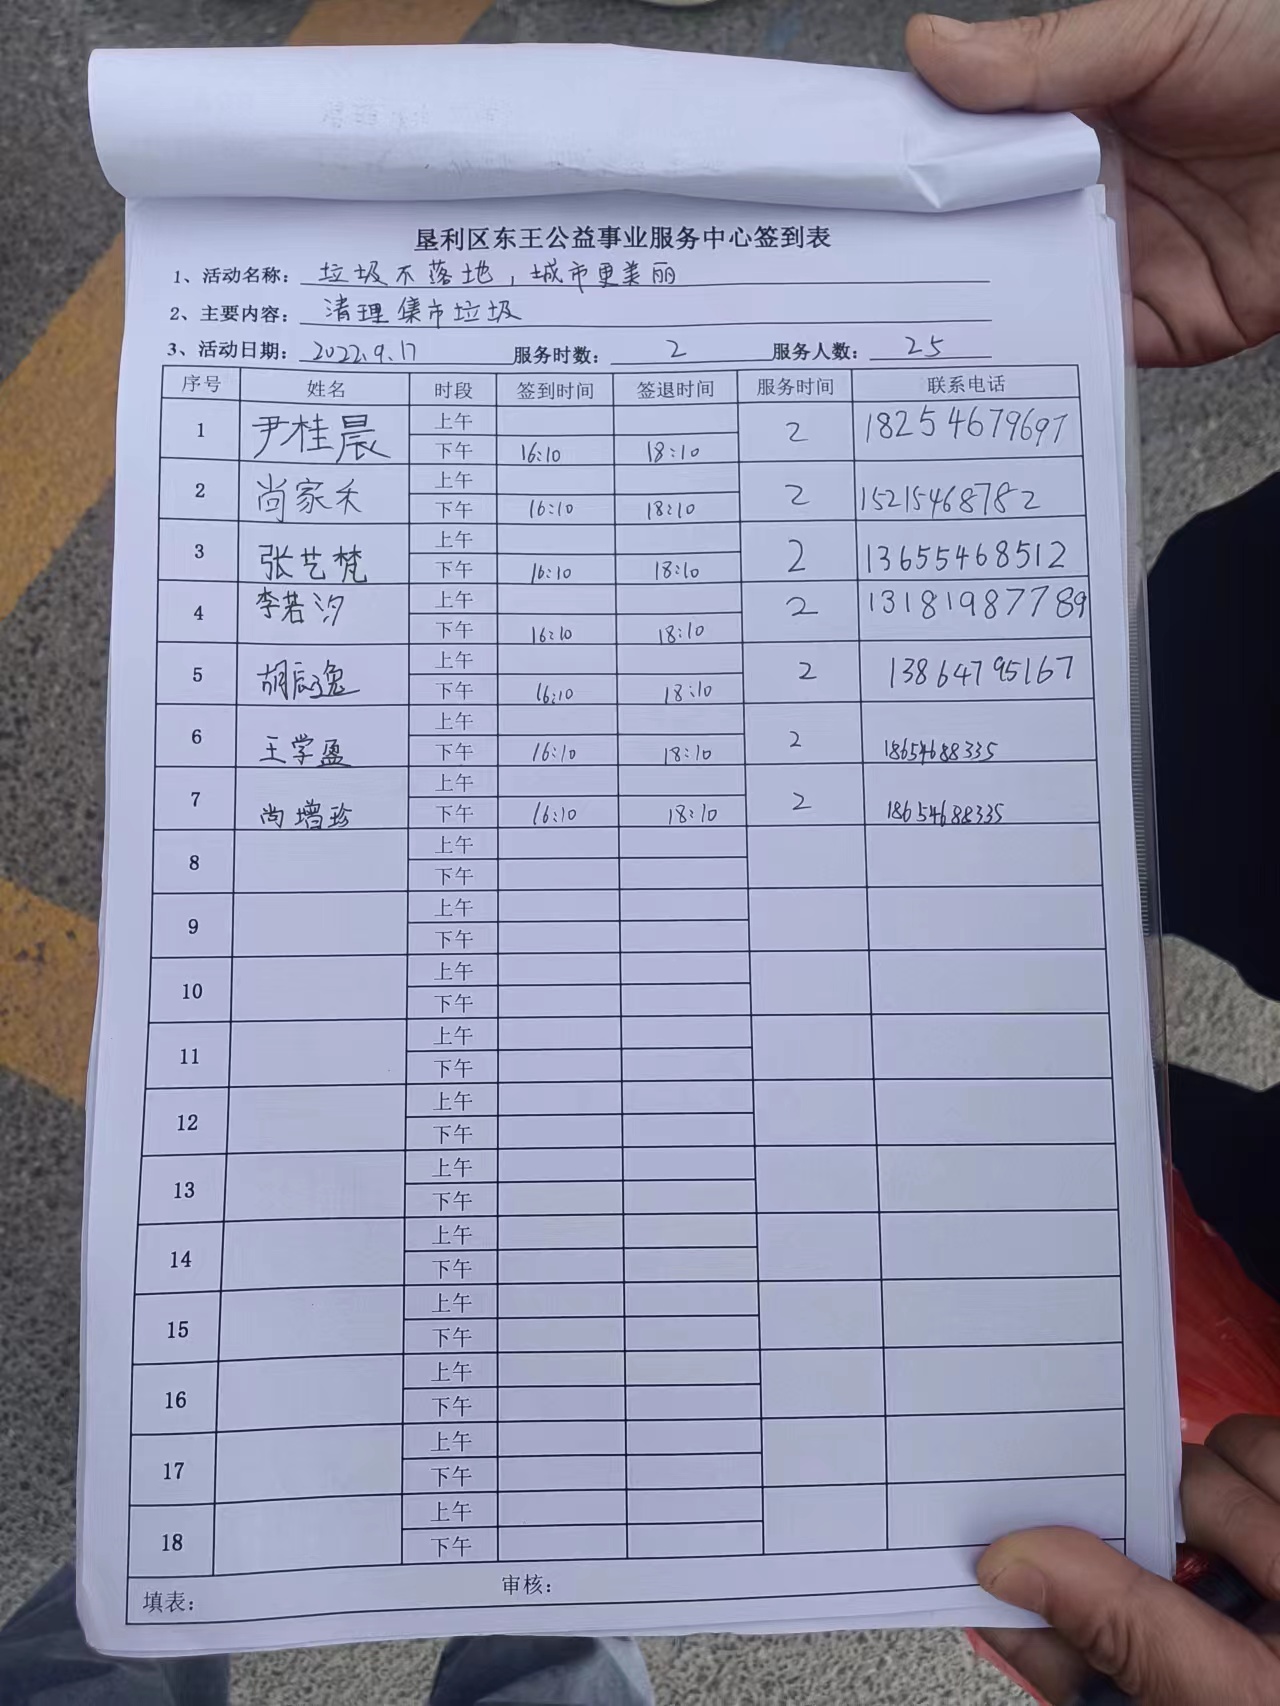 垦利区东王公益事业服务中心签到表
1、活动名称：垃圾不落地，城市更美丽
2、主要内容：清理集市垃圾
3、活动日期：2022.9.17 服务时数：2 服务人数：25
序号 姓名 时段 签到时间 签退时间 服务时间 联系电话
1 尹桂晨 上午 2 18254679697
下午 16:10 18:10
2 尚家禾 上午 2 15215468782
下午 16:10 18:10
3 张艺梵 上午 2 13655468512
下午 16:10 18:10
4 李若汐 上午 2 13181987789
下午 16:10 18:10
5 胡辰逸 上午 2 13864795167
下午 16:10 18:10
6 王学盈 上午 2 18654688335
下午 16:10 18:10
7 尚增珍 上午 2 18654688335
下午 16:10 18:10
8 上午
下午
9 上午
下午
10 上午
下午
11 上午
下午
12 上午
下午
13 上午
下午
14 上午
下午
15 上午
下午
16 上午
下午
17 上午
下午
18 上午
下午
填表： 审核：